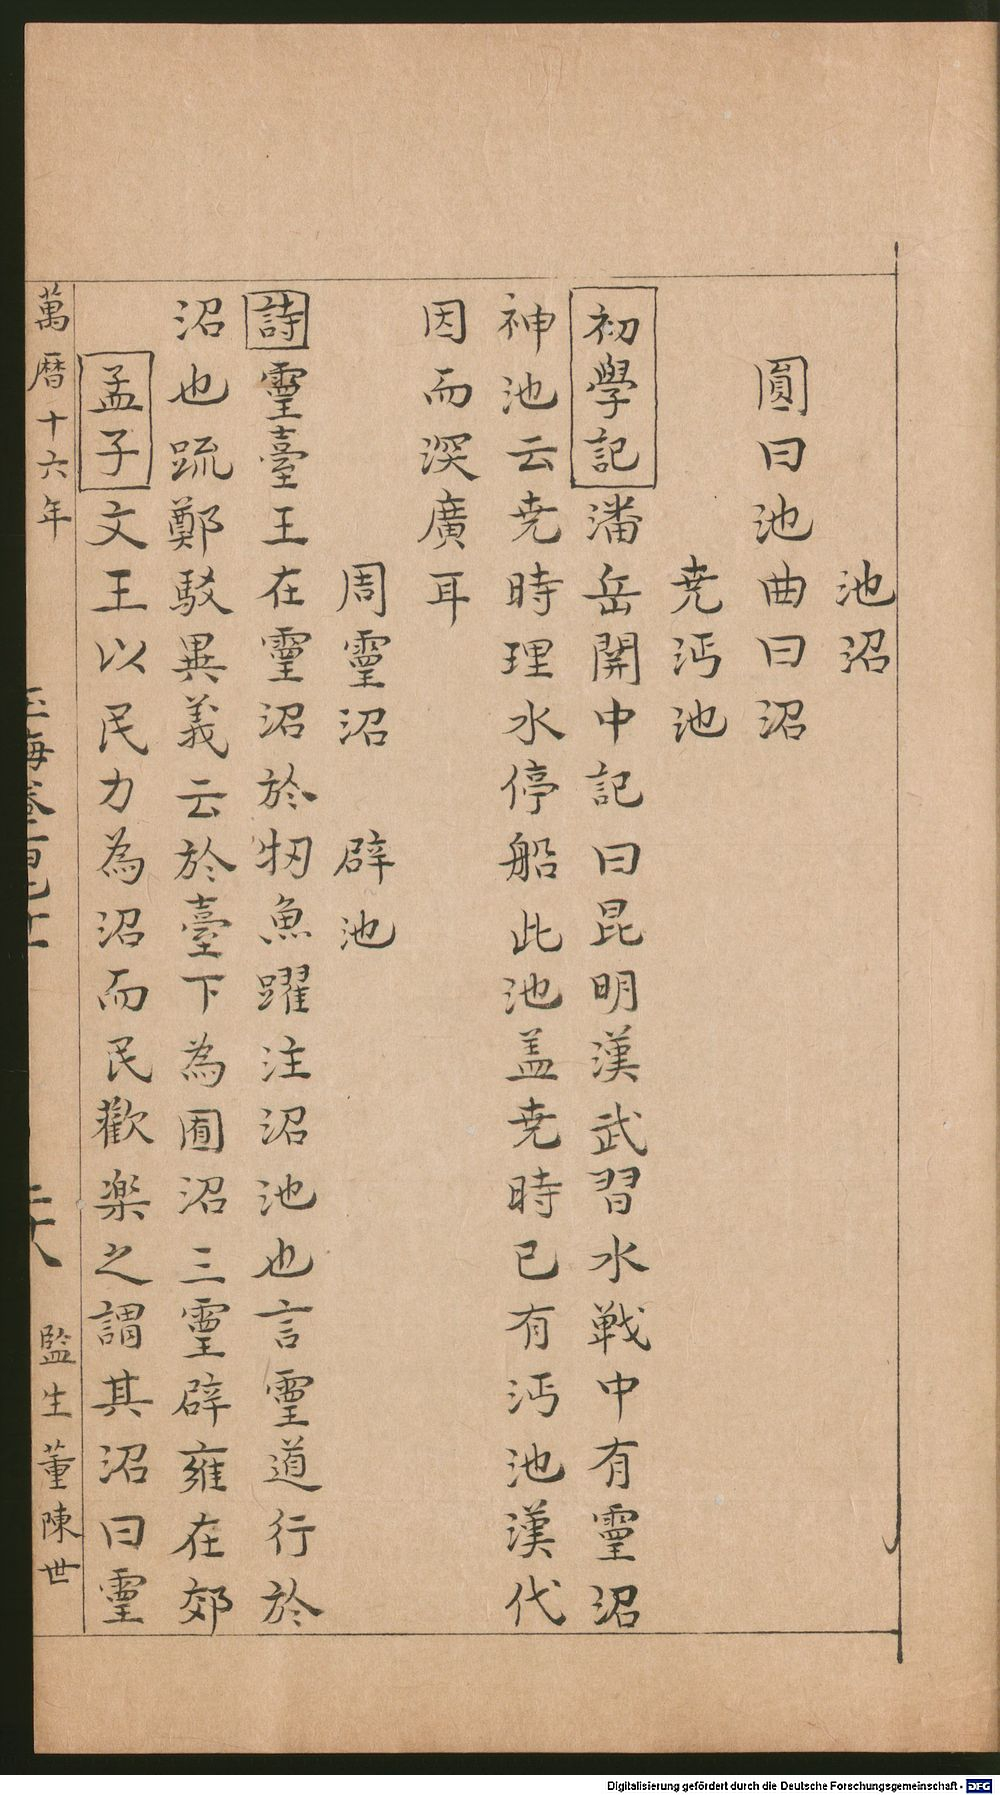 池沼
圓曰池曲曰沼
尭沔池
初學記潘岳關中記曰昆明漢武習水戦中有靈沼
神池云尭時理水停船此池盖尭時已有沔池漢代
因而深廣耳
周靈沼 辟池
詩靈臺王在靈沼於牣魚躍注沼池也言靈道行於
沼也䟽鄭駁異義云於臺下為囿沼三靈辟雍在郊
孟子文王以民力為沼而民歡楽之謂其沼曰靈
萬曆十六年
玉海卷百七十一
監生董陳世
Digitalisierung gefördert durch die Deutsche Forschungsgemeinschaft - DFG